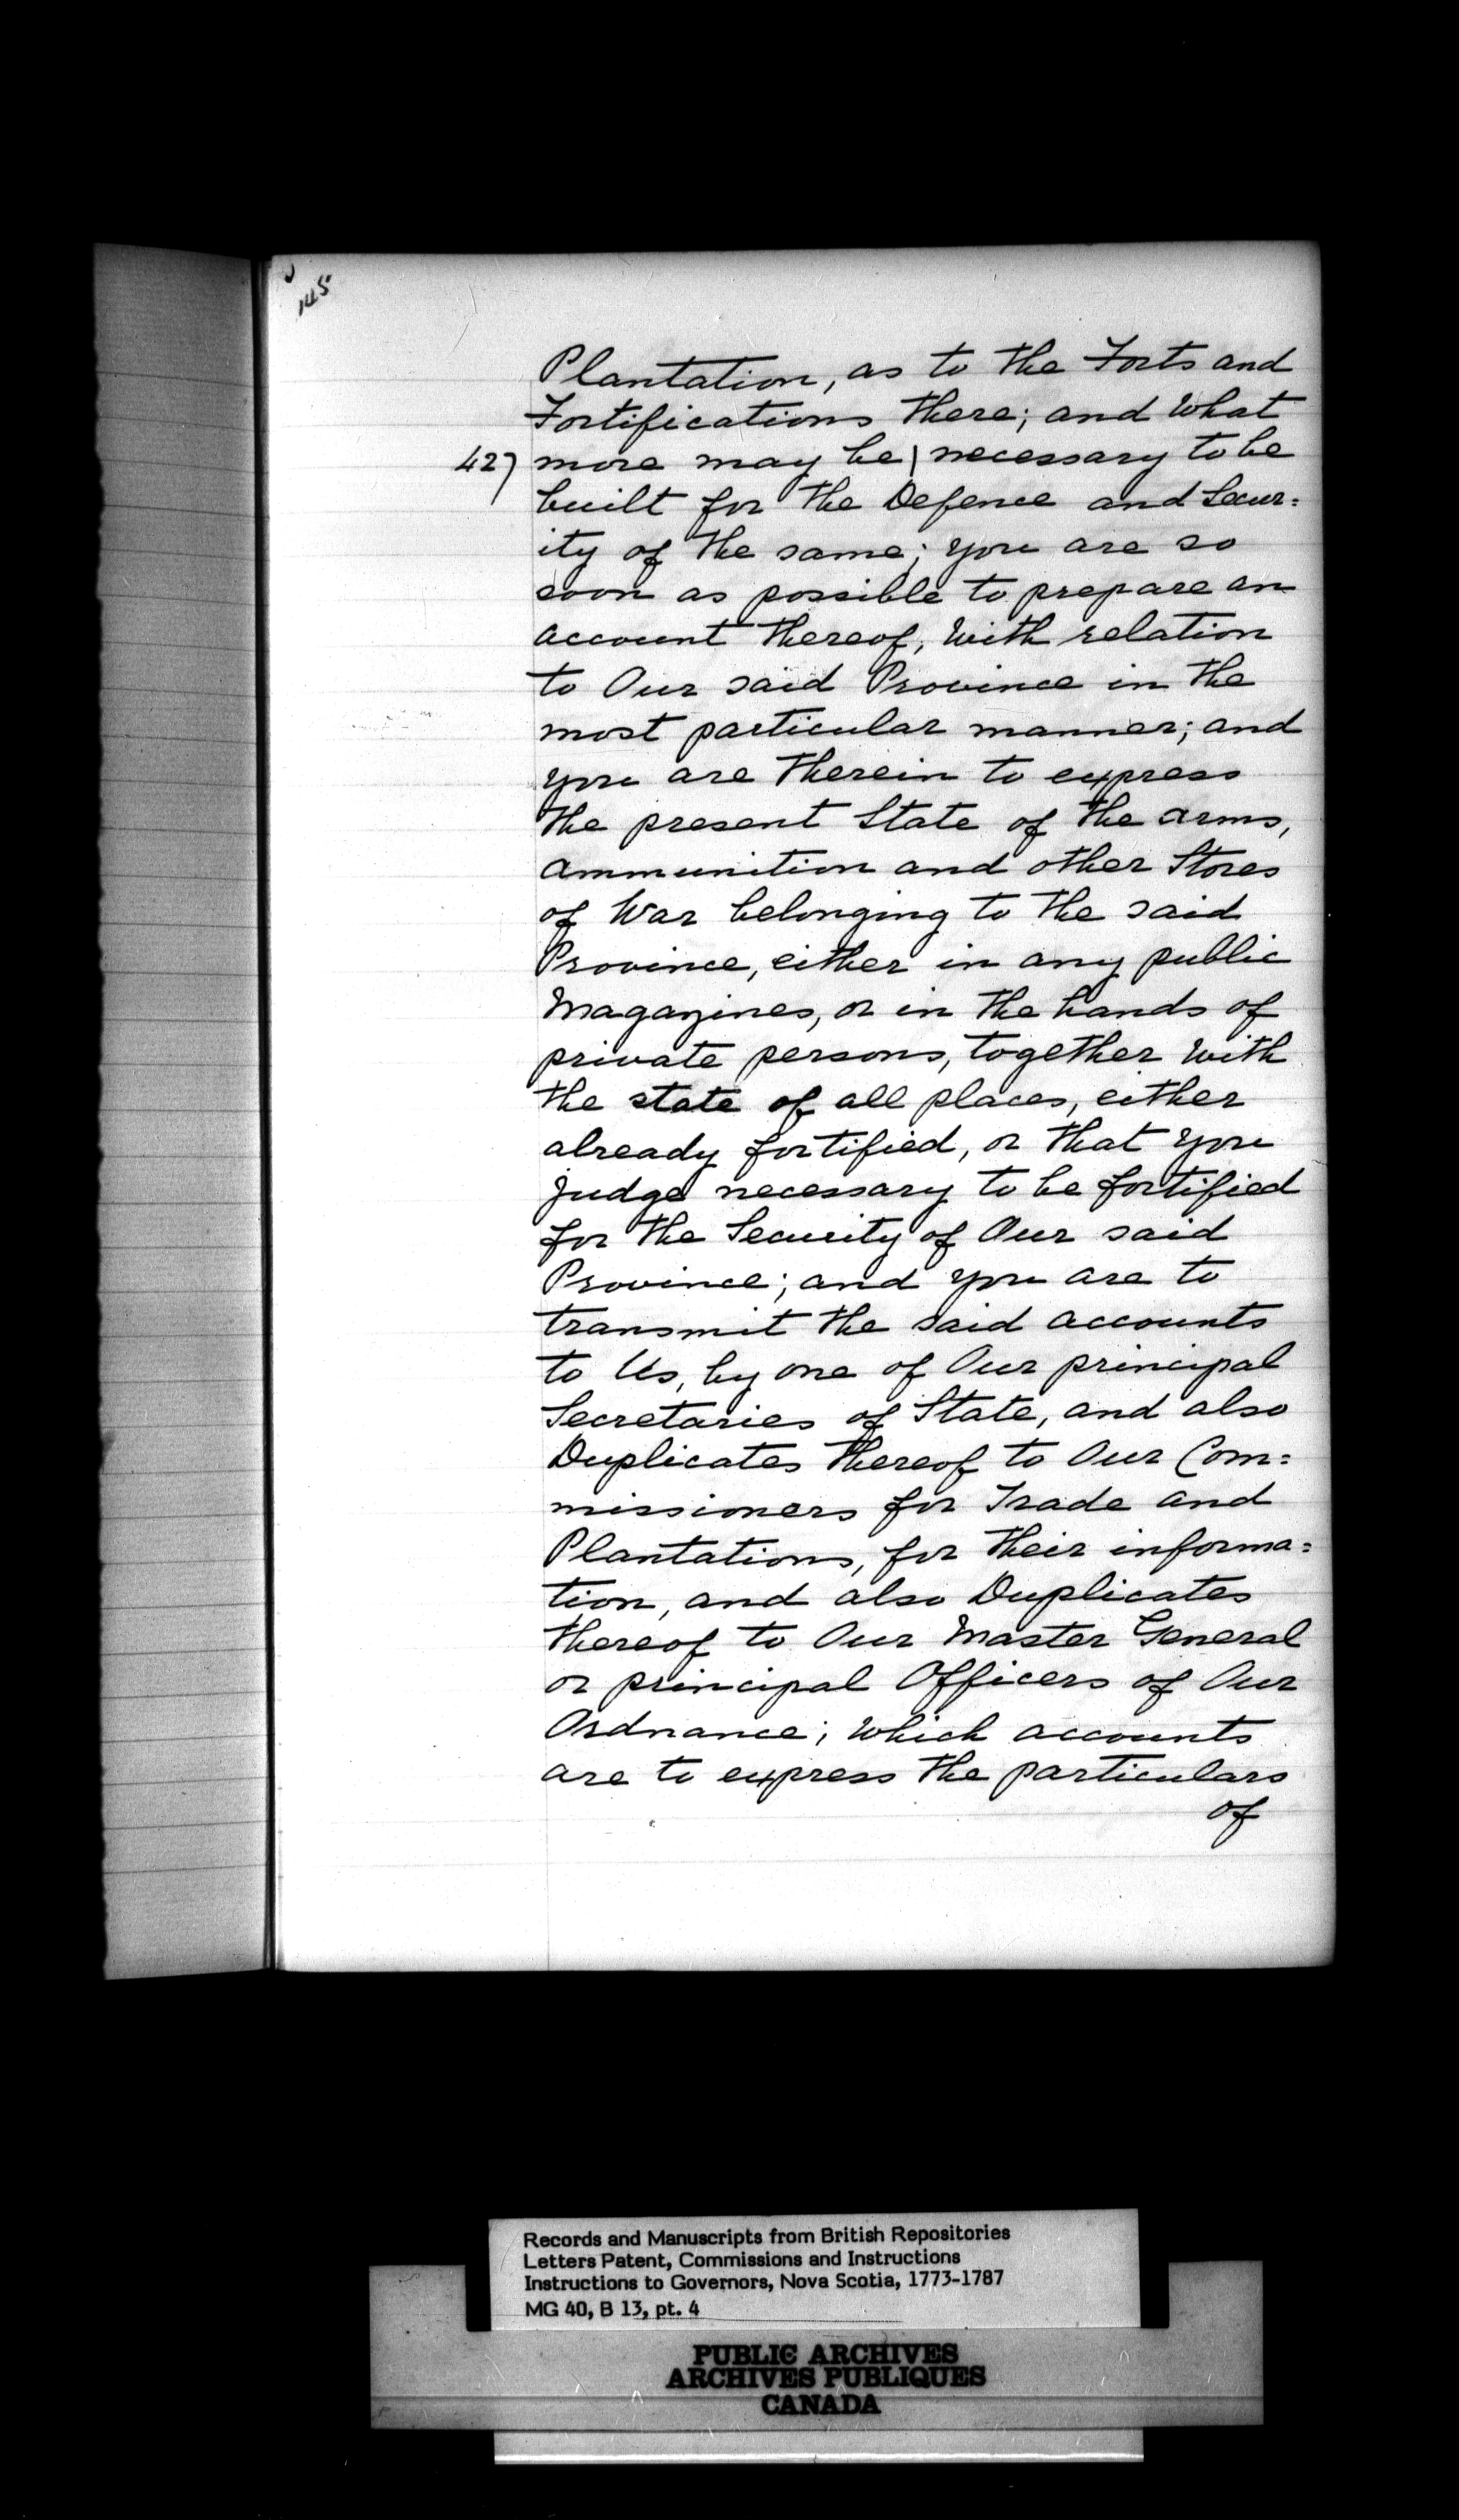 145
Plantation, as to the Forts and
Fortifications there; and what
427 more may be | necessary to be
built for the Defence and Secur=
ity of the same; you are so
soon as possible to prepare an
account thereof, with relation
to Our said Province in the
most particular manner; and
you are therein to express
the present State of the arms,
ammunition and other Stores
of War belonging to the said
Province, either in any public
Magazines, or in the hands of
private persons, together with
the state of all places, either
already fortified, or that you
judge necessary to be fortified
for the Security of Our said
Province; and you are to
transmit the said accounts
to Us, by one of Our principal
Secretaries of State, and also
Duplicates thereof to Our Com=
missioners for Trade and
Plantations, for their informa=
tion, and also Duplicates
thereof to Our Master General
or principal Officers of Our
Ordnance; which accounts
are to express the particulars
of
Records and Manuscripts from British Repositories
Letters Patent, Commissions and Instructions
Instructions to Governors, Nova Scotia, 1773-1787
MG 40, B 13, pt. 4
PUBLIC ARCHIVES
ARCHIVES PUBLIQUES
CANADA